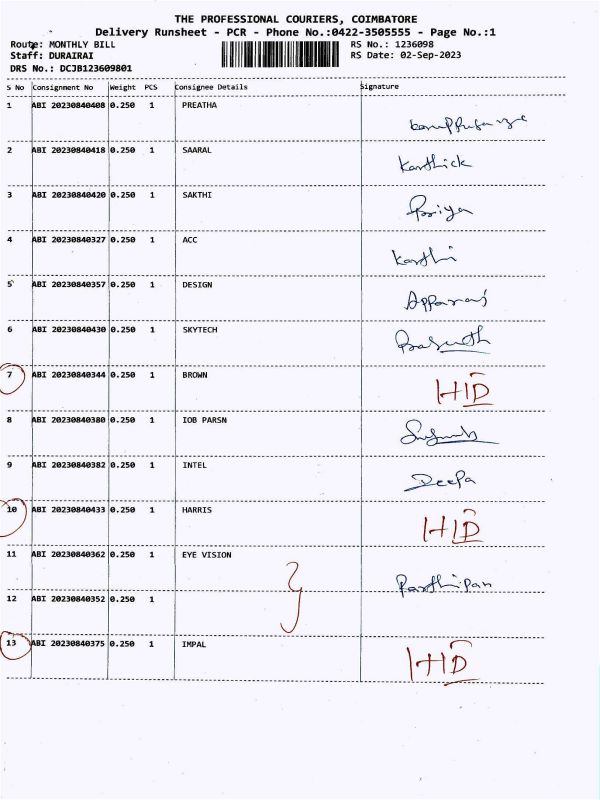 THE PROFESSIONAL COURIERS, COIMBATORE
Delivery Runsheet - PCR - Phone No.:0422-3505555 - Page No.:1
Route: MONTHLY BILL RS No.: 1236098
Staff: DURAIRAI RS Date: 02-Sep-2023
DRS No.: DCJB123609801
S No Consignment No Weight PCS Consignee Details Signature
1 ABI 20230840408 0.250 1 PREATHA
2 ABI 20230840418 0.250 1 SAARAL Karthick
3 ABI 20230840420 0.250 1 SAKTHI Priya
4 ABI 20230840327 0.250 1 ACC Karthi
5 ABI 20230840357 0.250 1 DESIGN
6 ABI 20230840430 0.250 1 SKYTECH
7 ABI 20230840344 0.250 1 BROWN HID
8 ABI 20230840380 0.250 1 IOB PARSN
9 ABI 20230840382 0.250 1 INTEL Deepa
10 ABI 20230840433 0.250 1 HARRIS HID
11 ABI 20230840362 0.250 1 EYE VISION Parthipan
12 ABI 20230840352 0.250 1
13 ABI 20230840375 0.250 1 IMPAL HID